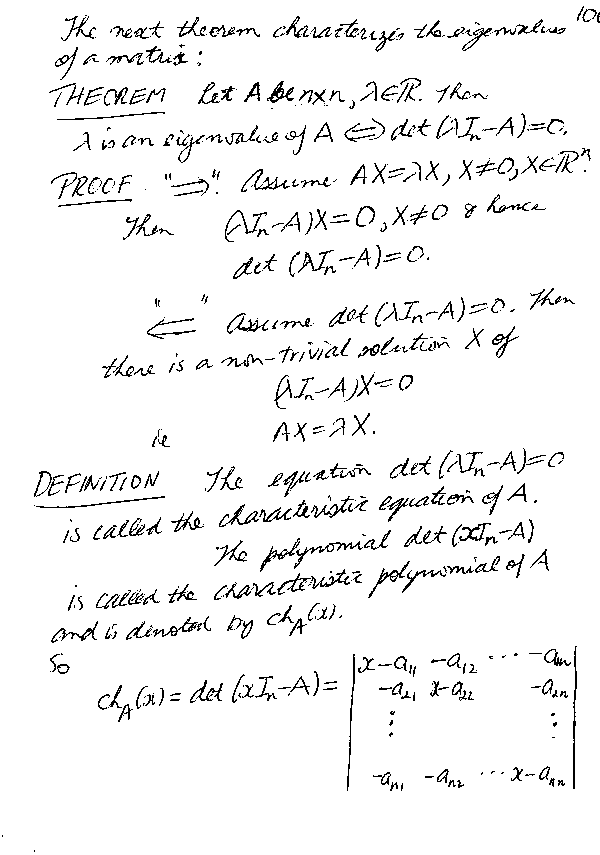 The next theorem characterizes the eigenvalues
of a matrix:
THEOREM Let A be n×n, λ∈ℝ. Then
λ is an eigenvalue of A ⇔ det(λIₙ-A)=0.
PROOF. "⇒". Assume AX=λX, X≠0, X∈ℝⁿ.
Then (λIₙ-A)X=0, X≠0 & hence
det(λIₙ-A)=0.
"⇐" Assume det(λIₙ-A)=0. Then
there is a non-trivial solution X of
(λIₙ-A)X=0
ie AX=λX.
DEFINITION The equation det(λIₙ-A)=0
is called the characteristic equation of A.
The polynomial det(xIₙ-A)
is called the characteristic polynomial of A
and is denoted by ch_A(x).
So
ch_A(x) = det(xIₙ-A) = | x-a₁₁ -a₁₂ ⋯ -a₁ₙ |
| -a₂₁ x-a₂₂ -a₂ₙ |
| ⋮ ⋮ |
| -aₙ₁ -aₙ₂ ⋯ x-aₙₙ |